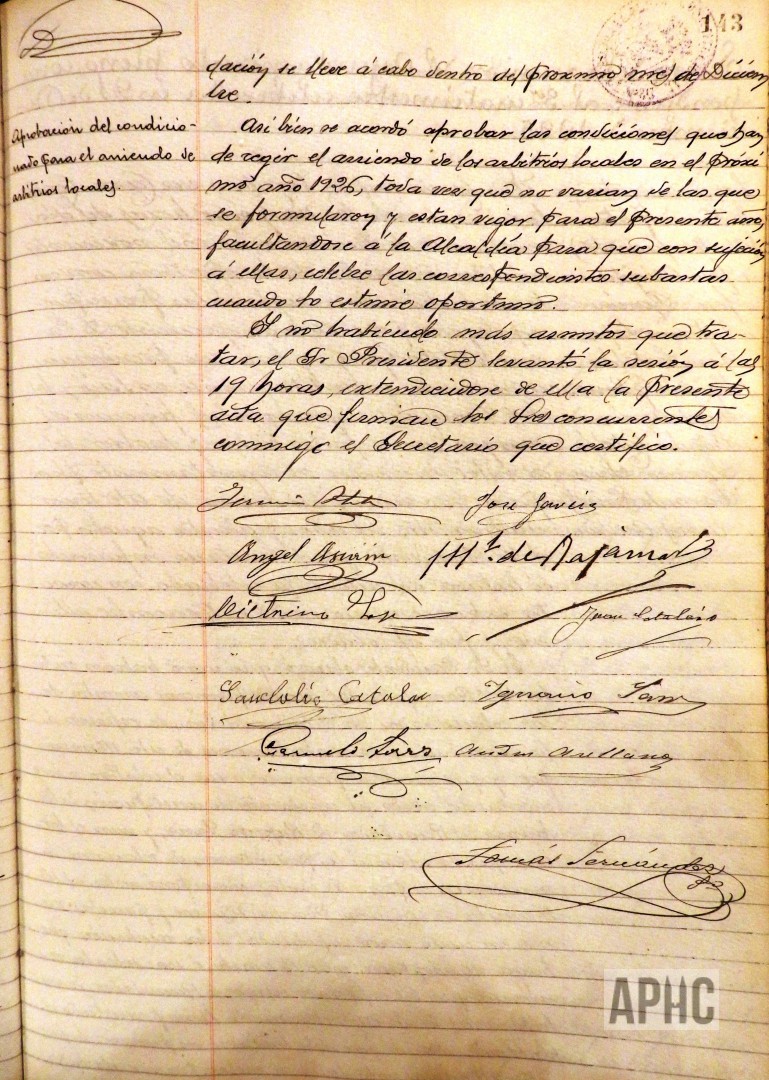 143
dación se lleve á cabo dentro del próximo mes de Diciem
bre.
Aprobación del condicio-
nado para el arriendo de
arbitrios locales.
Asi bien se acordó aprobar las condiciones que han
de regir el arriendo de los arbitrios locales en el próxi
mo año 1926, toda vez que no varian de las que
se formularon y estan vigor para el presente año,
facultandose á la Alcaldía para que con sujeción
á ellas, celebre las correspondientes subastas
cuando lo estime oportuno.
Y no habiendo más asuntos que tra-
tar, el Sr Presidente levantó la sesión á las
19 horas, extendiendose de ella la presente
acta que firman los Sres concurrentes
conmigo el Secretario que certifico.
Fermin José García
Angel Ml. de Rajamar
Victorino Juan Catalán
Sandalio Catalan Ignacio
Carmelo Torres Arellano
Tomás Fernández
APHC